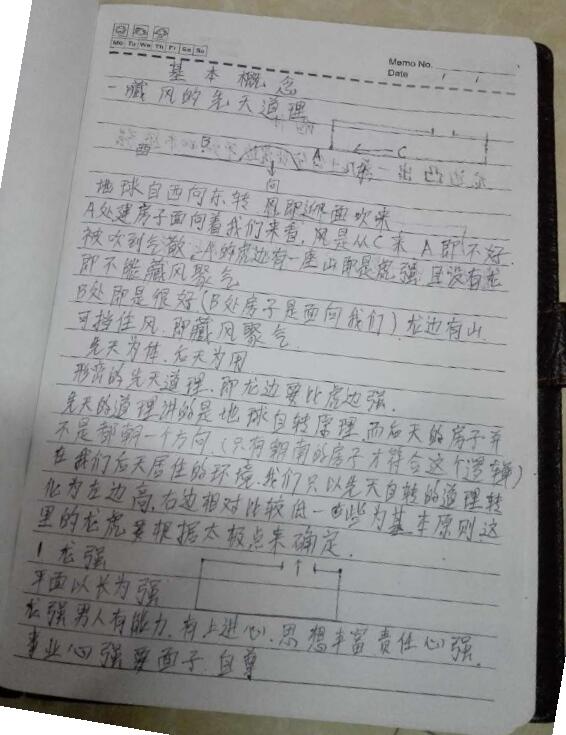 Mo Tu We Th Fr Sa Su
Memo No.
Date / /
基本概念
一藏风的先天道理
A C
西 向
地球自西向东转 风即迎面吹来
A处建房子面向着我们来看,风是从C来 A即不好.
被吹到气散,A的虎边有一座山即是虎强 且没有龙
即不能藏风聚气
B处即是很好(B处房子是面向我们)龙边有山
可挡住风.即藏风聚气
先天为体.后天为用
形峦的先天道理.即龙边要比虎边强.
先天的道理讲的是地球自转原理.而后天的房子并
不是都朝一个方向.(只有朝南的房子才符合这个逻辑)
在我们后天居住的环境.我们只以先天自转的道理转
化为左边高.右边相对比较低一些为基本原则这
里的龙虎要根据太极点来确定.
1 龙强
平面以长为强
龙强男人有能力.有上进心.思想丰富责任心强.
事业心强要面子.自尊